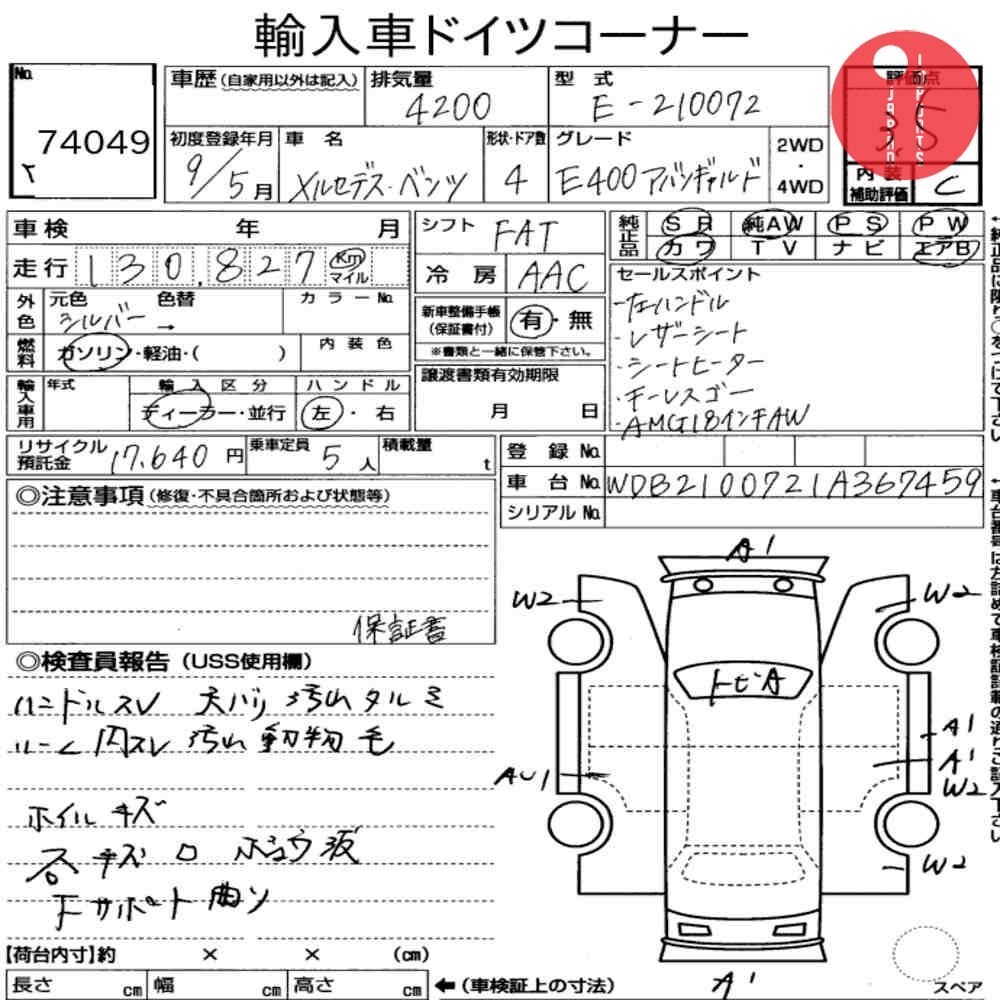 輸入車ドイツコーナー
No.
74049
車歴 (自家用以外は記入)
排気量
4200
型式
E-210072
評価点
3.5
JAPAN
IMPORTS
初度登録年月
9/5月
車名
メルセデス・ベンツ
形状・ドア数
4
グレード
E400アバンギャルド
2WD
・
4WD
内装
補助評価
C
車検 年 月
シフト
FAT
純正品
SR 純AW PS PW
カワ TV ナビ エアB
走行 130,827 Km
マイル
冷房
AAC
セールスポイント
・左ハンドル
・レザーシート
・シートヒーター
・キーレスゴー
・AMG18インチAW
外色
元色 色替
シルバー →
カラーNo.
新車整備手帳
(保証書付)
有・無
※書類と一緒に保管下さい。
燃料
ガソリン・軽油・( )
内装色
譲渡書類有効期限
月 日
輸入車用
年式
輸入区分
ディーラー・並行
ハンドル
左・右
リサイクル
預託金
17,640円
乗車定員
5人
積載量
t
登録No.
車台No. WDB2100721A367459
シリアルNo.
◎注意事項 (修復・不具合箇所および状態等)
保証書
◎検査員報告 (USS使用欄)
ハンドルスレ 天バリ汚れタルミ
ルーム内スレ 汚れ 動物毛
ホイルキズ
下サポート曲り
A1
W2
W2
トビA
A1
A1
W2
AU1
W2
A1
【荷台内寸】約 × × (cm)
長さ cm 幅 cm 高さ cm
←(車検証上の寸法)
スペア
←純正品に限り○をつけて下さい
←車台番号は左詰めで車検証記載の通りご記入下さい